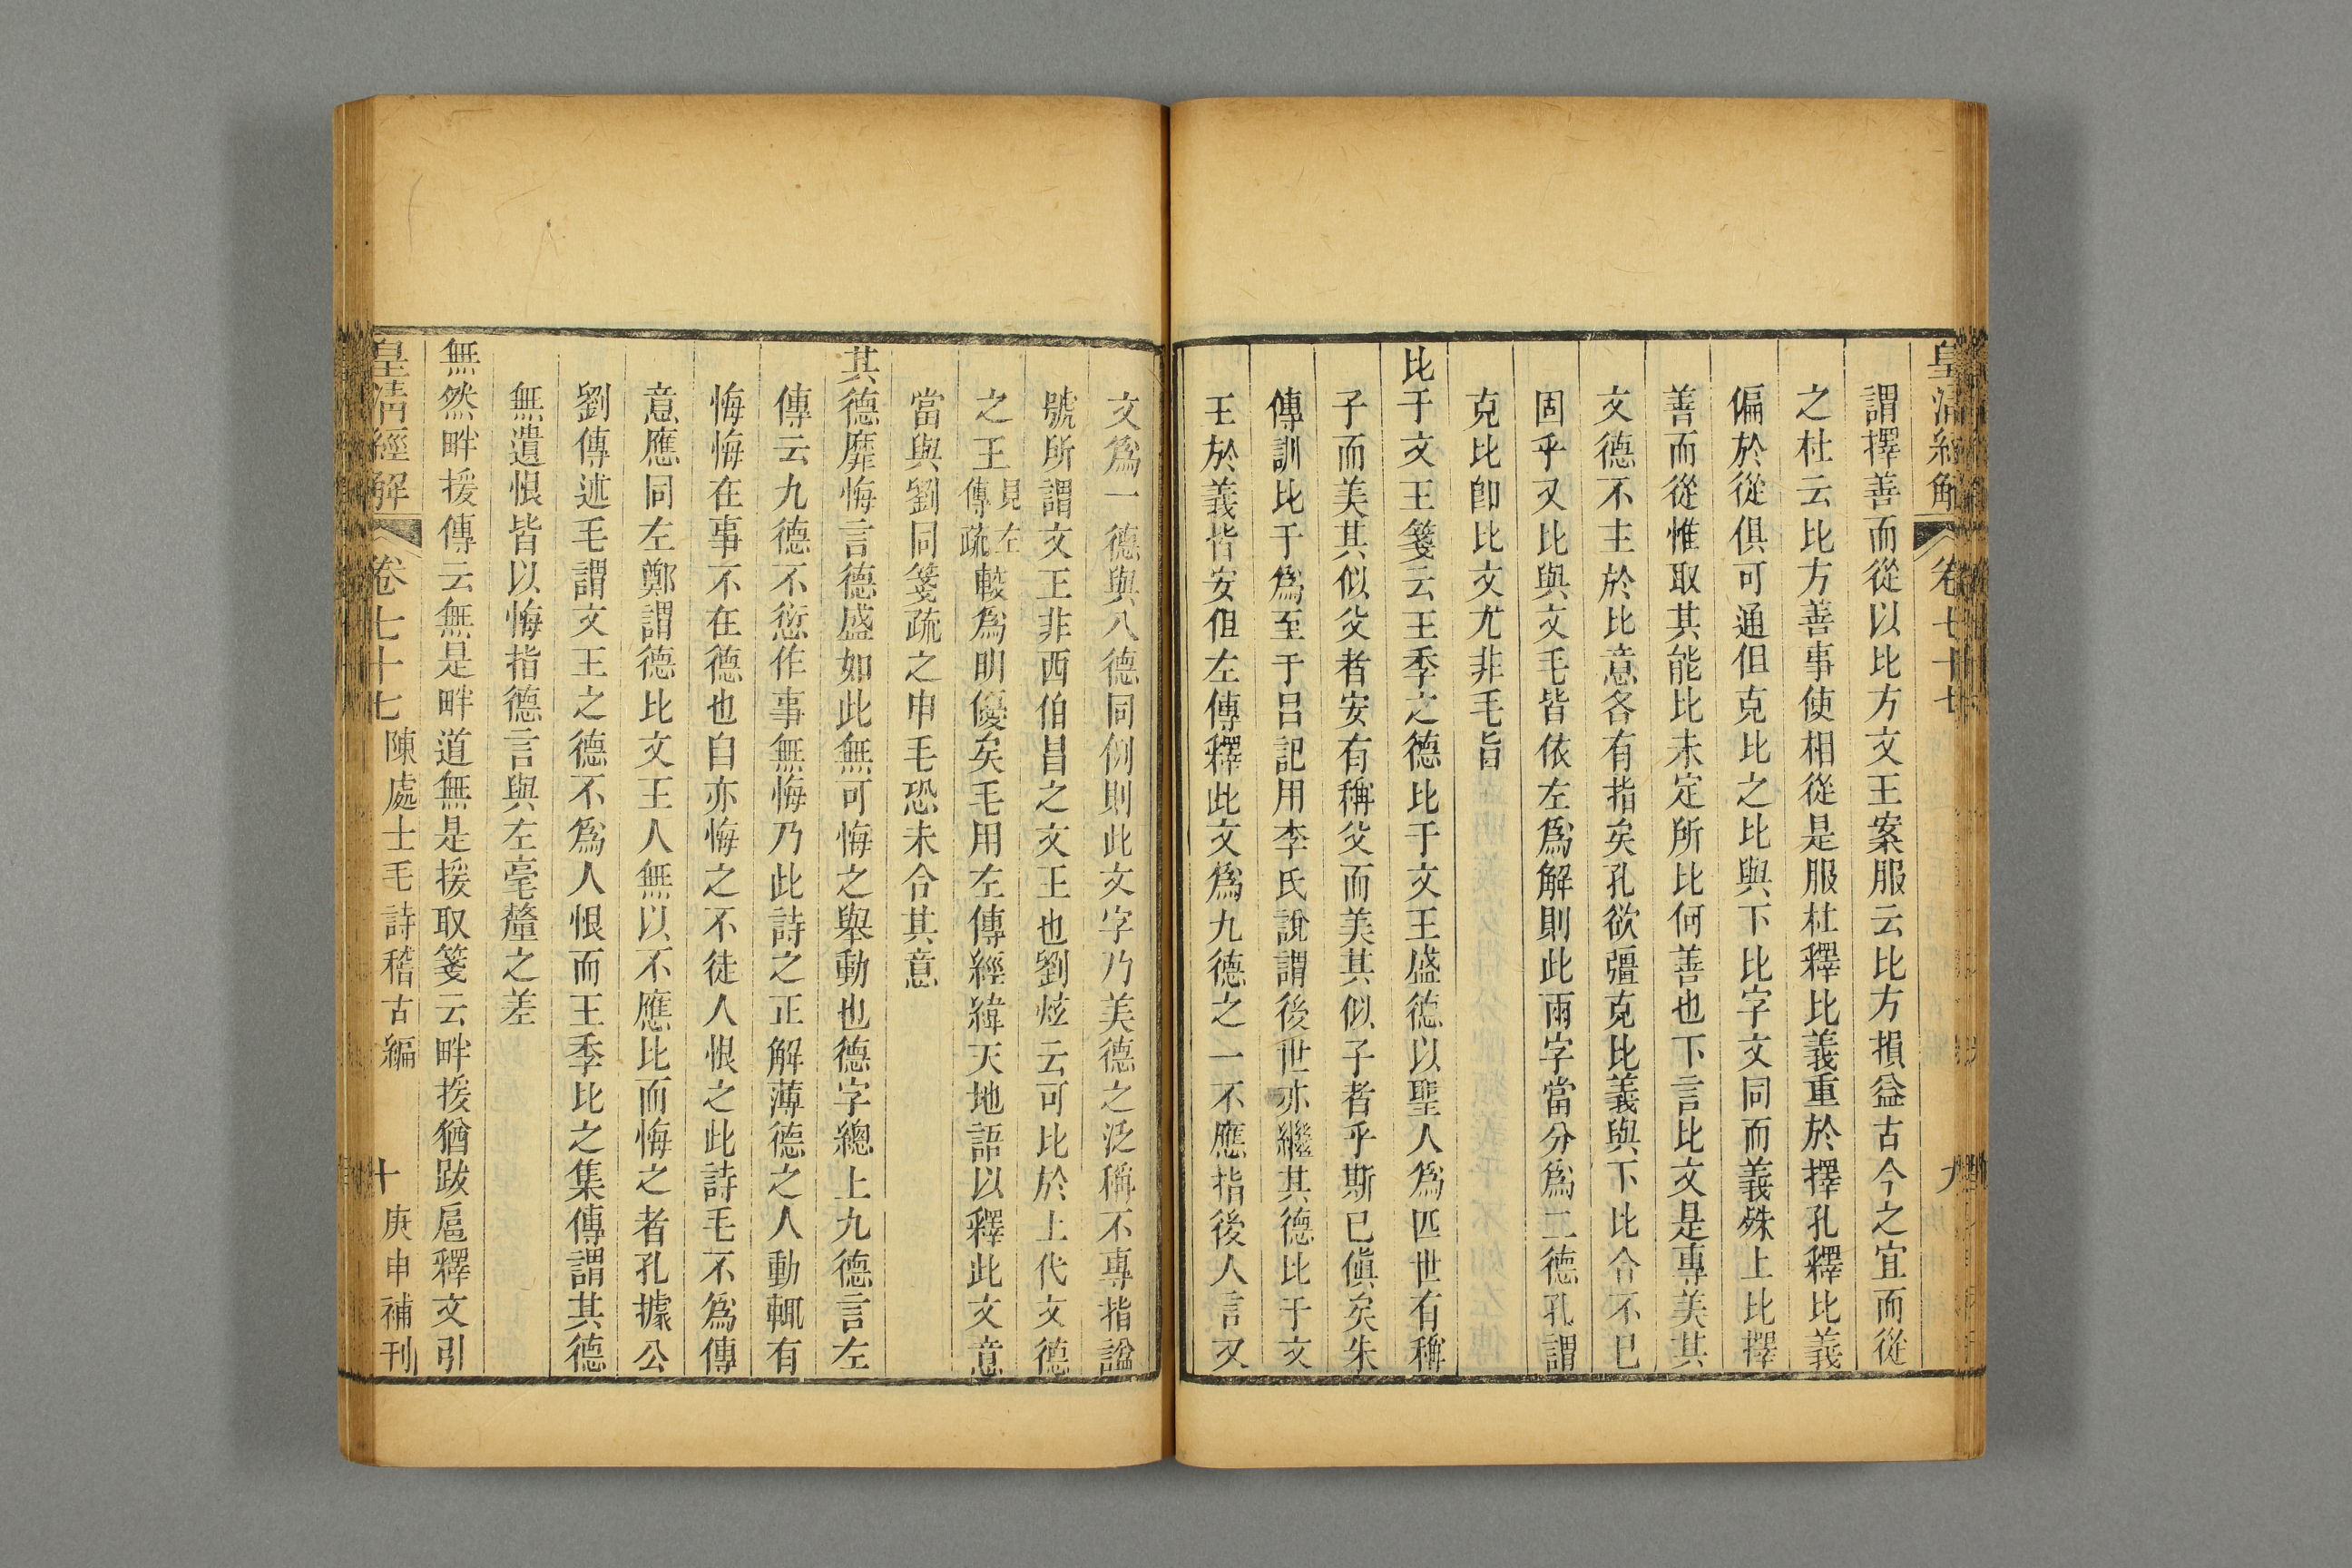 皇清經解 卷七十七 九
謂擇善而從以比方文王案服云比方損益古今之宜而從
之杜云比方善事使相從是服杜釋比義重於擇孔釋比義
偏於從俱可通但克比之比與下比字文同而義殊上比擇
善而從惟取其能比未定所比何善也下言比文是專美其
文德不主於比意各有指矣孔欲彊克比義與下比合不已
固乎又比與文毛皆依左為解則此兩字當分為二德孔謂
克比卽比文尤非毛旨
比于文王箋云王季之德比于文王盛德以聖人為匹世有稱
子而美其似父者安有稱父而美其似子者乎斯已傎矣朱
傳訓比于為至于呂記用李氏說謂後世亦繼其德比于文
王於義皆安但左傳釋此文為九德之一不應指後人言又
文為一德與八德同例則此文字乃美德之泛稱不專指諡
號所謂文王非西伯昌之文王也劉炫云可比於上代文德
之王見左傳疏較為明優矣毛用左傳經緯天地語以釋此文意
當與劉同箋疏之申毛恐未合其意
其德靡悔言德盛如此無可悔之舉動也德字總上九德言左
傳云九德不愆作事無悔乃此詩之正解薄德之人動輒有
悔悔在事不在德也自亦悔之不徒人恨之此詩毛不為傳
意應同左鄭謂德比文王人無以不應比而悔之者孔據公
劉傳述毛謂文王之德不為人恨而王季比之集傳謂其德
無遺恨皆以悔指德言與左毫釐之差
無然畔援傳云無是畔道無是援取箋云畔援猶跋扈釋文引
皇清經解 卷七十七 陳處士毛詩稽古編 十 庚申補刊